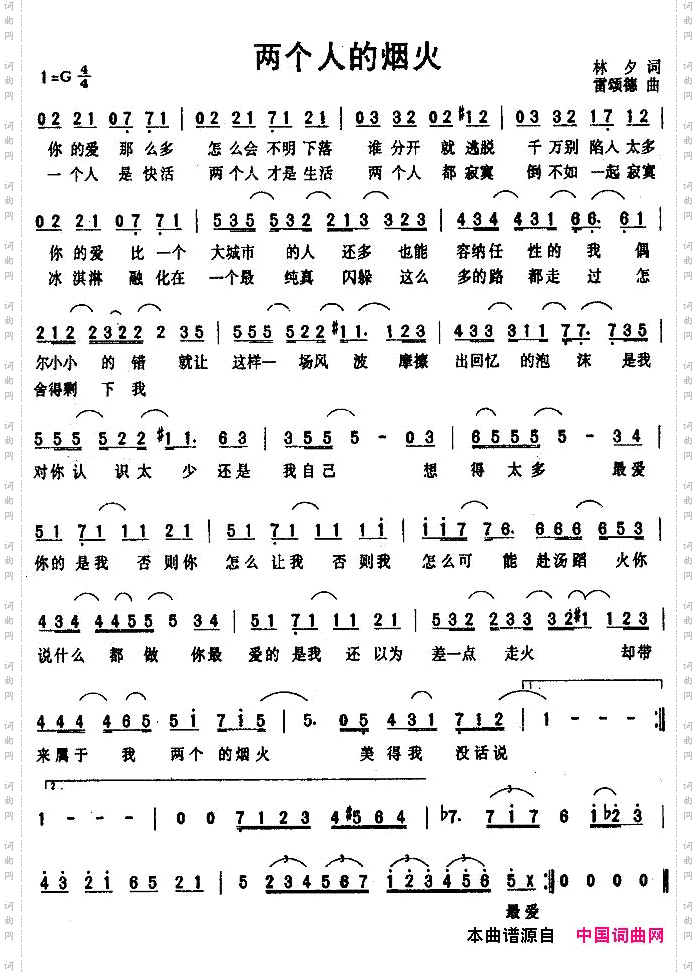 两个人的烟火
1=G 4/4
林夕 词
雷颂德 曲
02 21 07 71 | 02 21 07 71 | 03 32 02 #12 | 03 32 02 21
你的爱 那么多 怎么会 不明下落 谁分开 就逃脱 千万别 陷入太多
一个人 是快活 两个人 才是生活 两个人 都寂寞 倒不如 一起寂寞
02 21 07 71 | 535 532 213 323 | 434 431 66. 61
你的爱 比一个 大城市 的人 还多 也能 容纳任 性的我 偶
冰淇淋 融化在 一个最 纯真 闪躲 这么 多的路 都走过 怎
212 2322 223 335 | 555 522 #11. 223 | 433 311 77. 735
尔小小 的错 就让 这样一 场风 波 摩擦 出回忆 的泡 沫 是我
舍得剩 下我
555 522 #11. 63 | 355 5 - 03 | 6555 5 - 34
对你认 识太 少 还是 我自己 想 得太多 最爱
51 711 11 21 | 51 711 11 11 | 1176 6. 666 653
你的是我 否则你 怎么让我 否则我 怎么可 能 赴汤蹈 火你
434 4455 5 534 | 51 711 11 21 | 532 2233 32#1 123
说什么 都做 你最 爱的是我 还以为 差一点 走火 却带
444 465 51 715 | 5. 05 431 712 | 1 - - - :||
来属于 我 两个 的烟火 美得我 没话说
1.
2.
1 - - - | 0 0 7123 4#564 | b7. 717 6 1b23
43 21 65 21 | 5 234567 123456 5X :|| 0 0 0 0
最爱
本曲谱源自 中国词曲网
词曲网